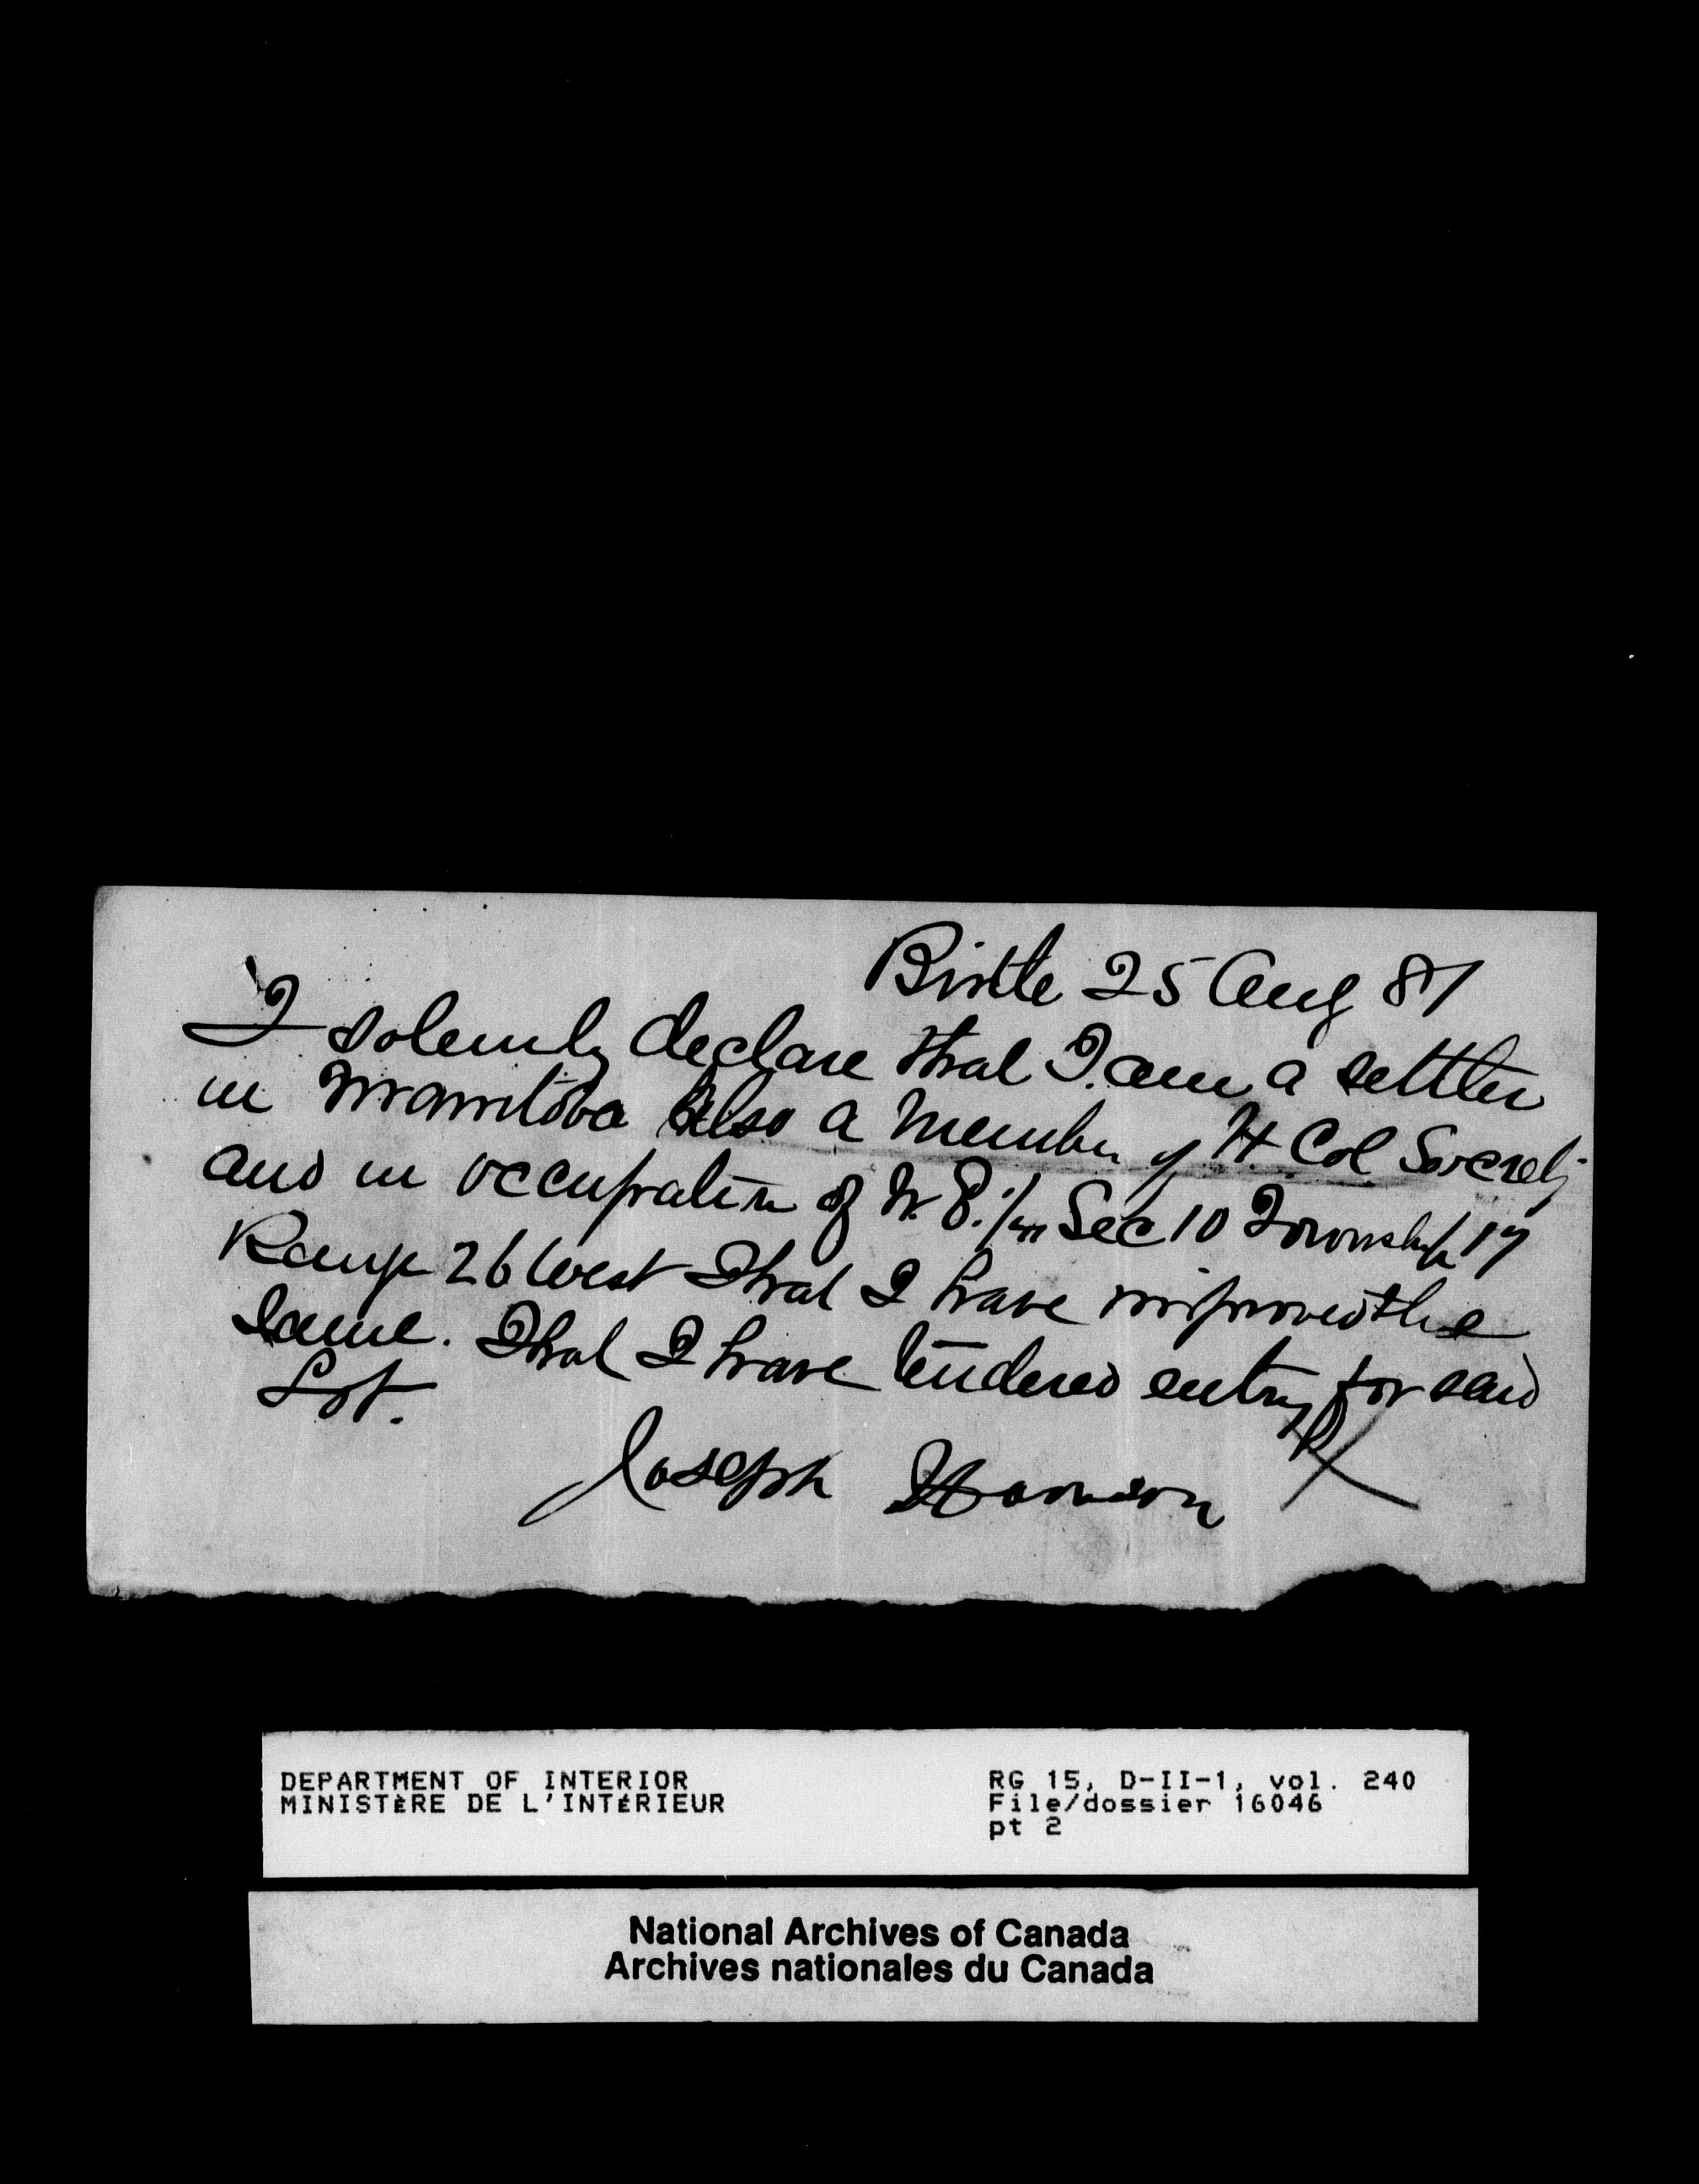 Birtle 25 Aug 81
I solemnly declare that I am a settler
in Manitoba also a Member of H. Col. Society
and in occupation of N. E. 1/4 Sec 10 Township 17
Range 26 West That I have improved the
Same. That I have tendered entry for said
Lot.
Joseph Harrison
DEPARTMENT OF INTERIOR
MINISTÈRE DE L'INTÉRIEUR
RG 15, D-II-1, vol. 240
File/dossier 16046
pt 2
National Archives of Canada
Archives nationales du Canada